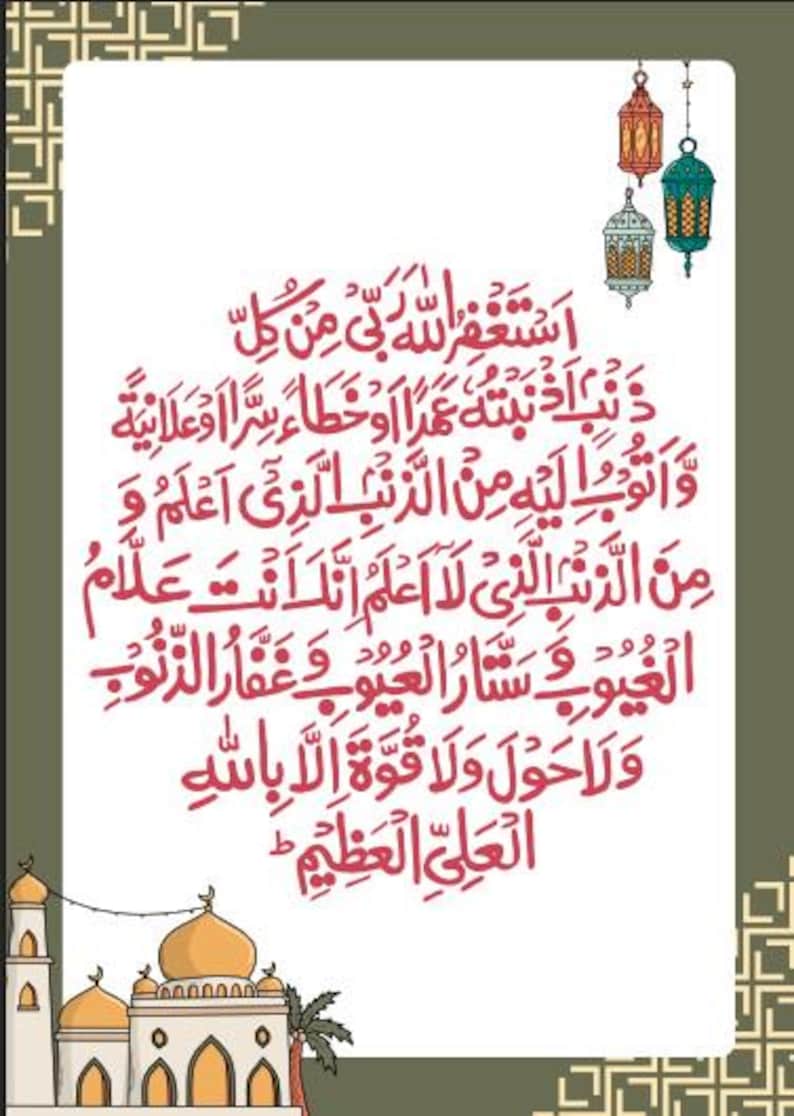 اَسْتَغْفِرُ اللّٰهَ رَبِّىْ مِنْ كُلِّ
ذَنْۢبٍ اَذْنَبْتُهٗ عَمَدًا اَوْ خَطَاءً سِرًّا اَوْ عَلَانِيَةً
وَّاَتُوْبُ اِلَيْهِ مِنَ الذَّنْۢبِ الَّذِىْٓ اَعْلَمُ وَ
مِنَ الذَّنْۢبِ الَّذِىْ لَآ اَعْلَمُ اِنَّكَ اَنْتَ عَلَّامُ
الْغُيُوْبِ وَ سَتَّارُ الْعُيُوْبِ وَ غَفَّارُ الذُّنُوْبِ
وَلَا حَوْلَ وَلَا قُوَّةَ اِلَّا بِاللّٰهِ
الْعَلِىِّ الْعَظِيْمِ ؕ